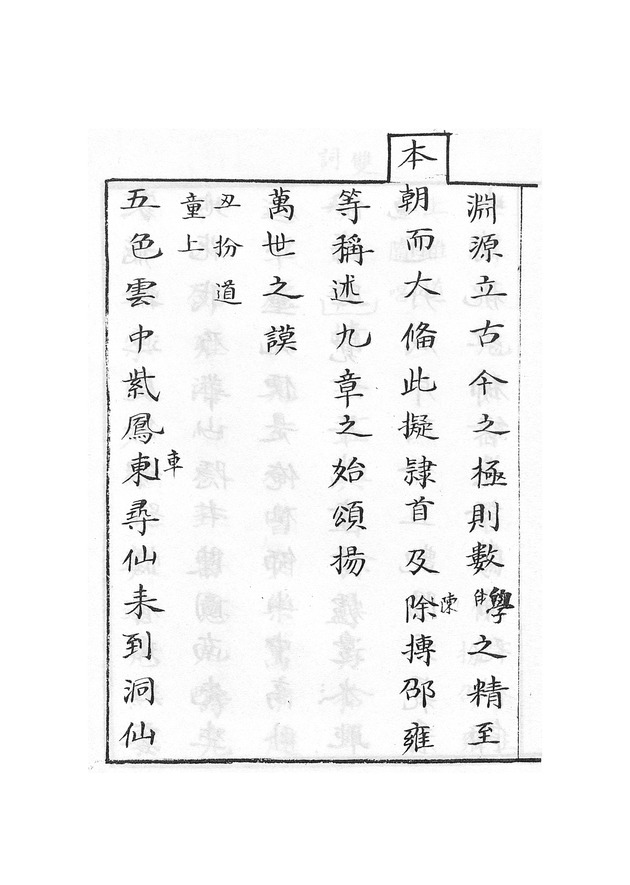 淵源立古今之極則數學之精至
本朝而大備此擬隸首及除摶邵雍
陳
等稱述九章之始頌揚
萬世之謨
丑扮道
童上
五色雲中紫鳳東尋仙未到洞仙
車